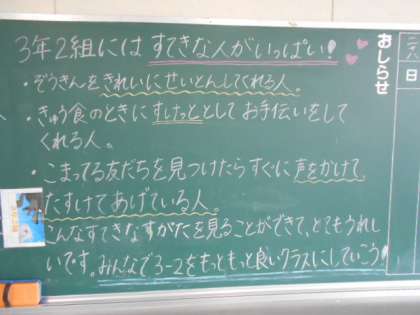 3年2組には すてきな人がいっぱい!
・ぞうきんをきれいにせいとんしてくれる人。
・きゅう食のときにすけっととしてお手伝いをして
くれる人。
・こまってる友だちを見つけたらすぐに声をかけて、
たすけてあげている人。
こんなすてきなすがたを見ることができて、とてもうれし
いです。みんなで3-2をもっともっと良いクラスにしていこう!
おしらせ
日